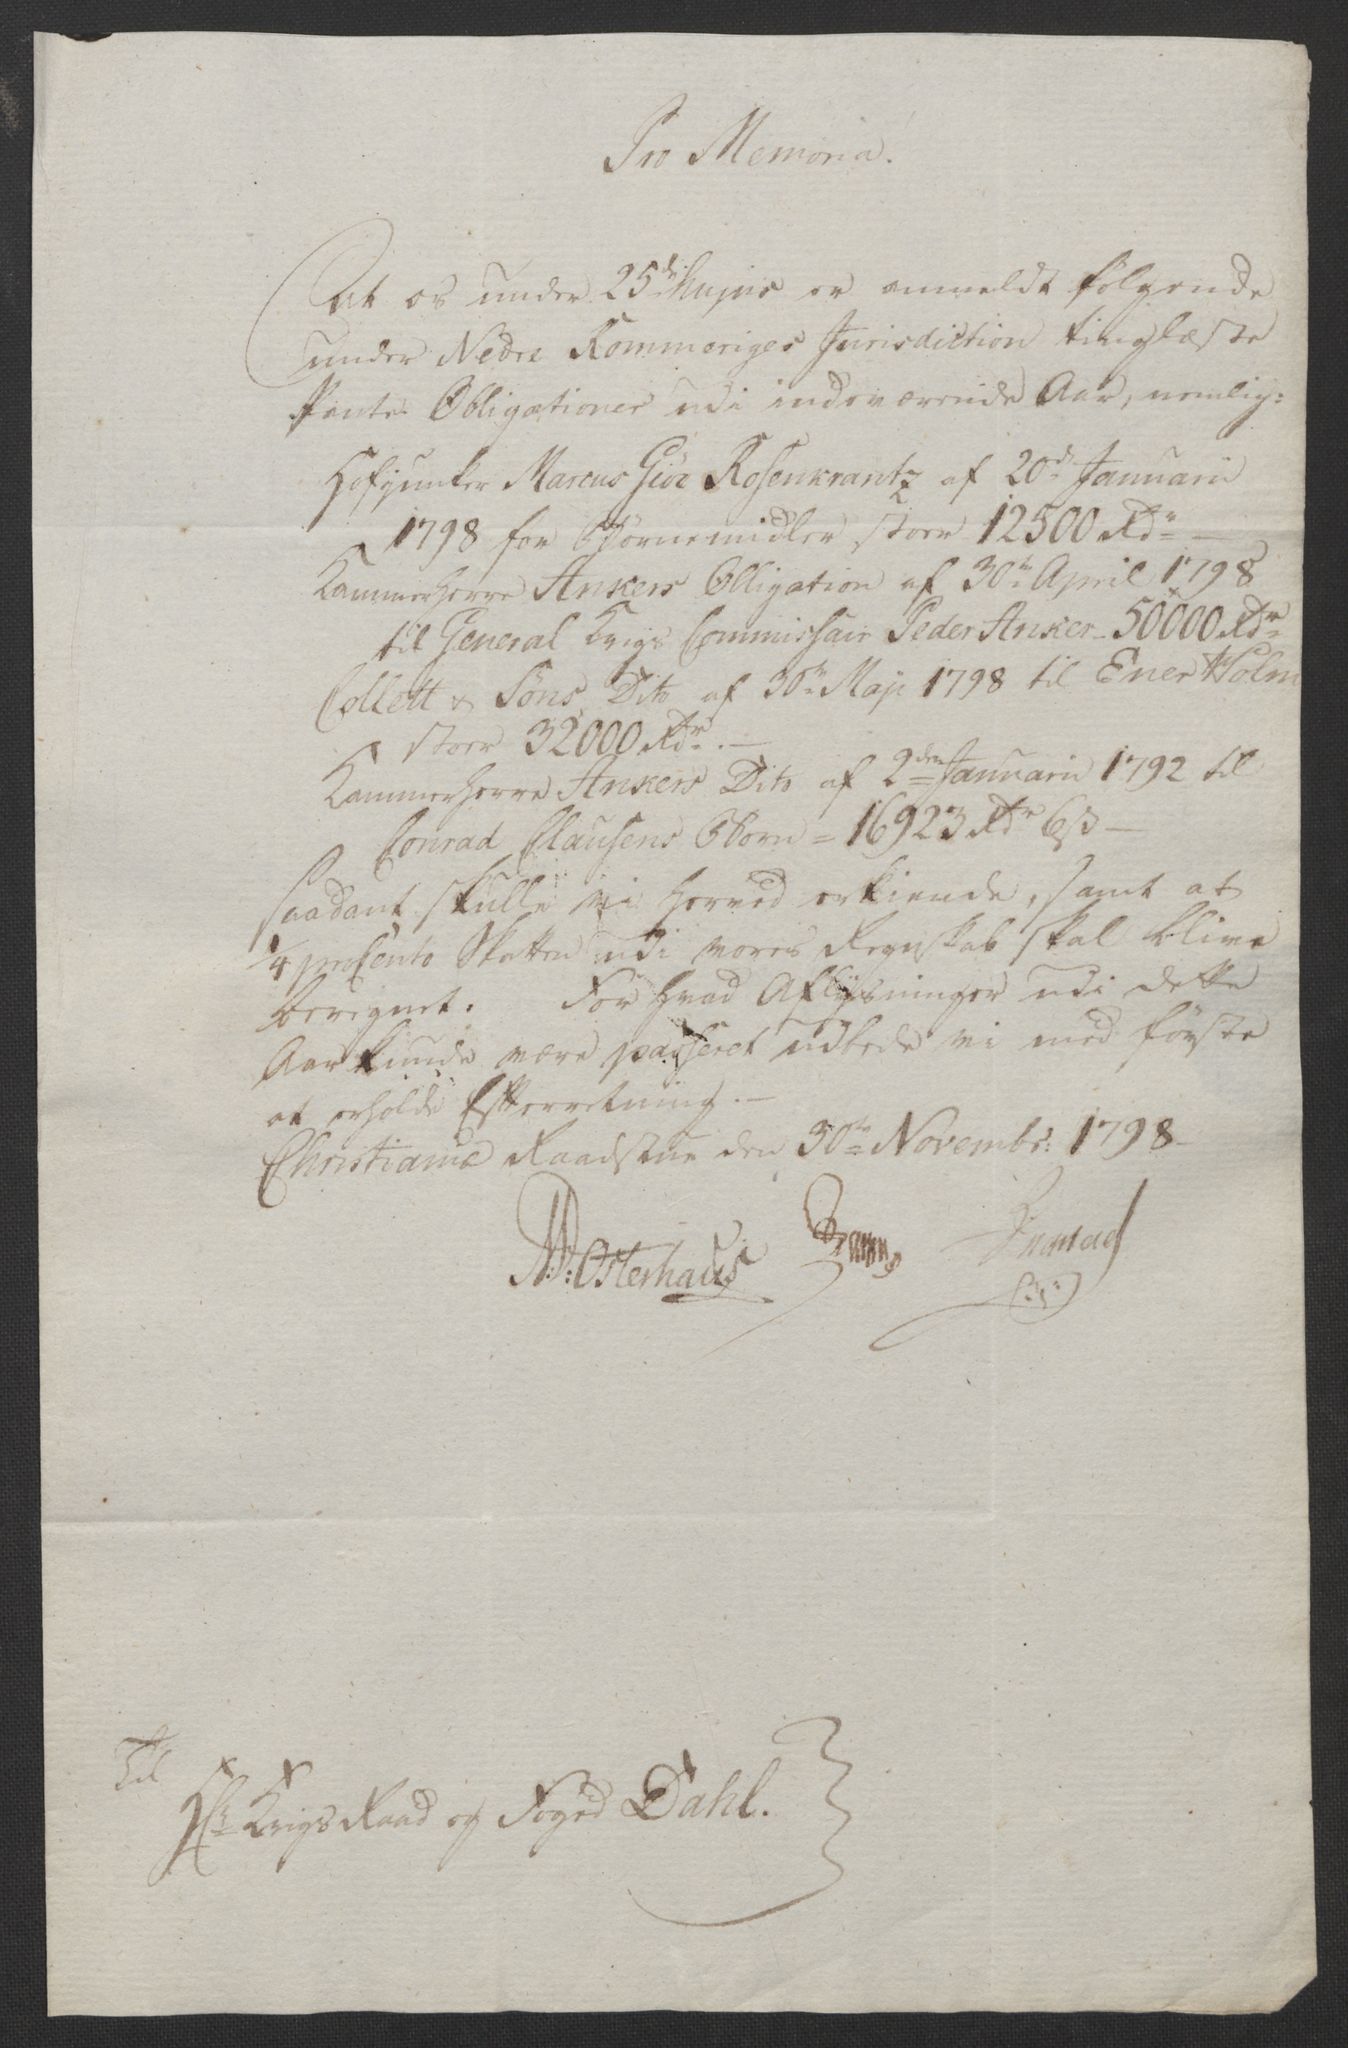 Pro Memoria.
At os under 25de hujus er anmeldt følgende
under Nedre Rommeriges Jurisdiction tinglæste
Pante Obligationer udi indeværende Aar, nemlig:
Hofjunker Marcus Giøe Rosenkrantz af 20de Januarii
1798 for Børnemidler stoer 12500 Rdr —
Kammerherre Ankers Obligation af 30te April 1798
til General Krigs Commissair Peder Anker - 50000 Rdr
Collett & Søns Dito af 30te Maji 1798 til Ener Holm
stoer 32000 Rdr. —
Kammerherre Ankers Dito af 2den Januarii 1792 til
Conrad Clausens Børn = 16923 Rdr 6 s —
Saadant skulle vi herved erkiende, samt at
1/4 proCento Skatten udi vores Regnskab skal blive
beregnet. For hvad Aflysninger udi dette
Aar kunde være passeret udbede vi med første
at erholde Efterretning. —
Christiania Raadstue den 30te Novembr: 1798
N: Osterhaus
Til
Hr Krigs Raad og Foged Dahl.